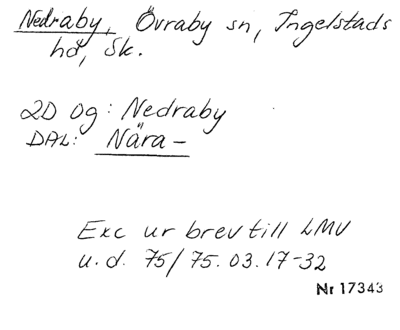 Nedraby, Övraby sn, Ingelstads
hd, Sk.
2D 0g: Nedraby
DAL: Nära -
Exc ur brev till LMV
u.d. 75/75.03.17-32
Nr 17343